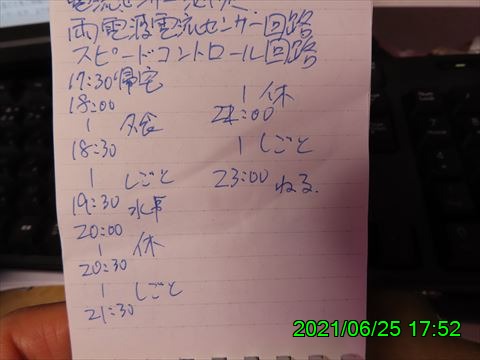 電流センサー
両電源電流センサー回路
スピードコントロール回路
17:30 帰宅
18:00
| 夕食
18:30
| しごと
19:30
20:00
| 休
20:30
| しごと
21:30
| 休
22:00
| しごと
23:00 ねる.
2021/06/25 17:52